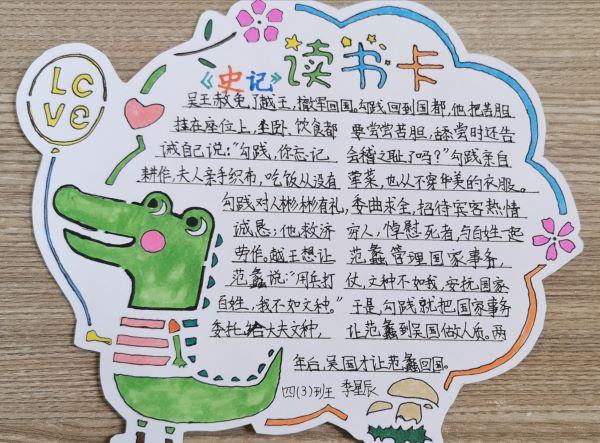 LOVE
《史记》读书卡
吴王赦免了越王,撤军回国。勾践回到国都,他把苦胆
挂在座位上,坐卧、饮食都要尝尝苦胆,舔尝时还告
诫自己说:“勾践,你忘记会稽之耻了吗?”勾践亲自
耕作,夫人亲手织布,吃饭从没有荤菜,也从不穿华美的衣服。
勾践对人彬彬有礼,委曲求全,招待宾客热情
诚恳;他救济穷人,悼慰死者,与百姓一起
劳作。越王想让范蠡管理国家事务,
范蠡说:“用兵打仗,文种不如我,安抚国家
百姓,我不如文种。”于是,勾践就把国家事务
委托给大夫文种,让范蠡到吴国做人质。两
年后,吴国才让范蠡回国。
四(3)班 李星辰